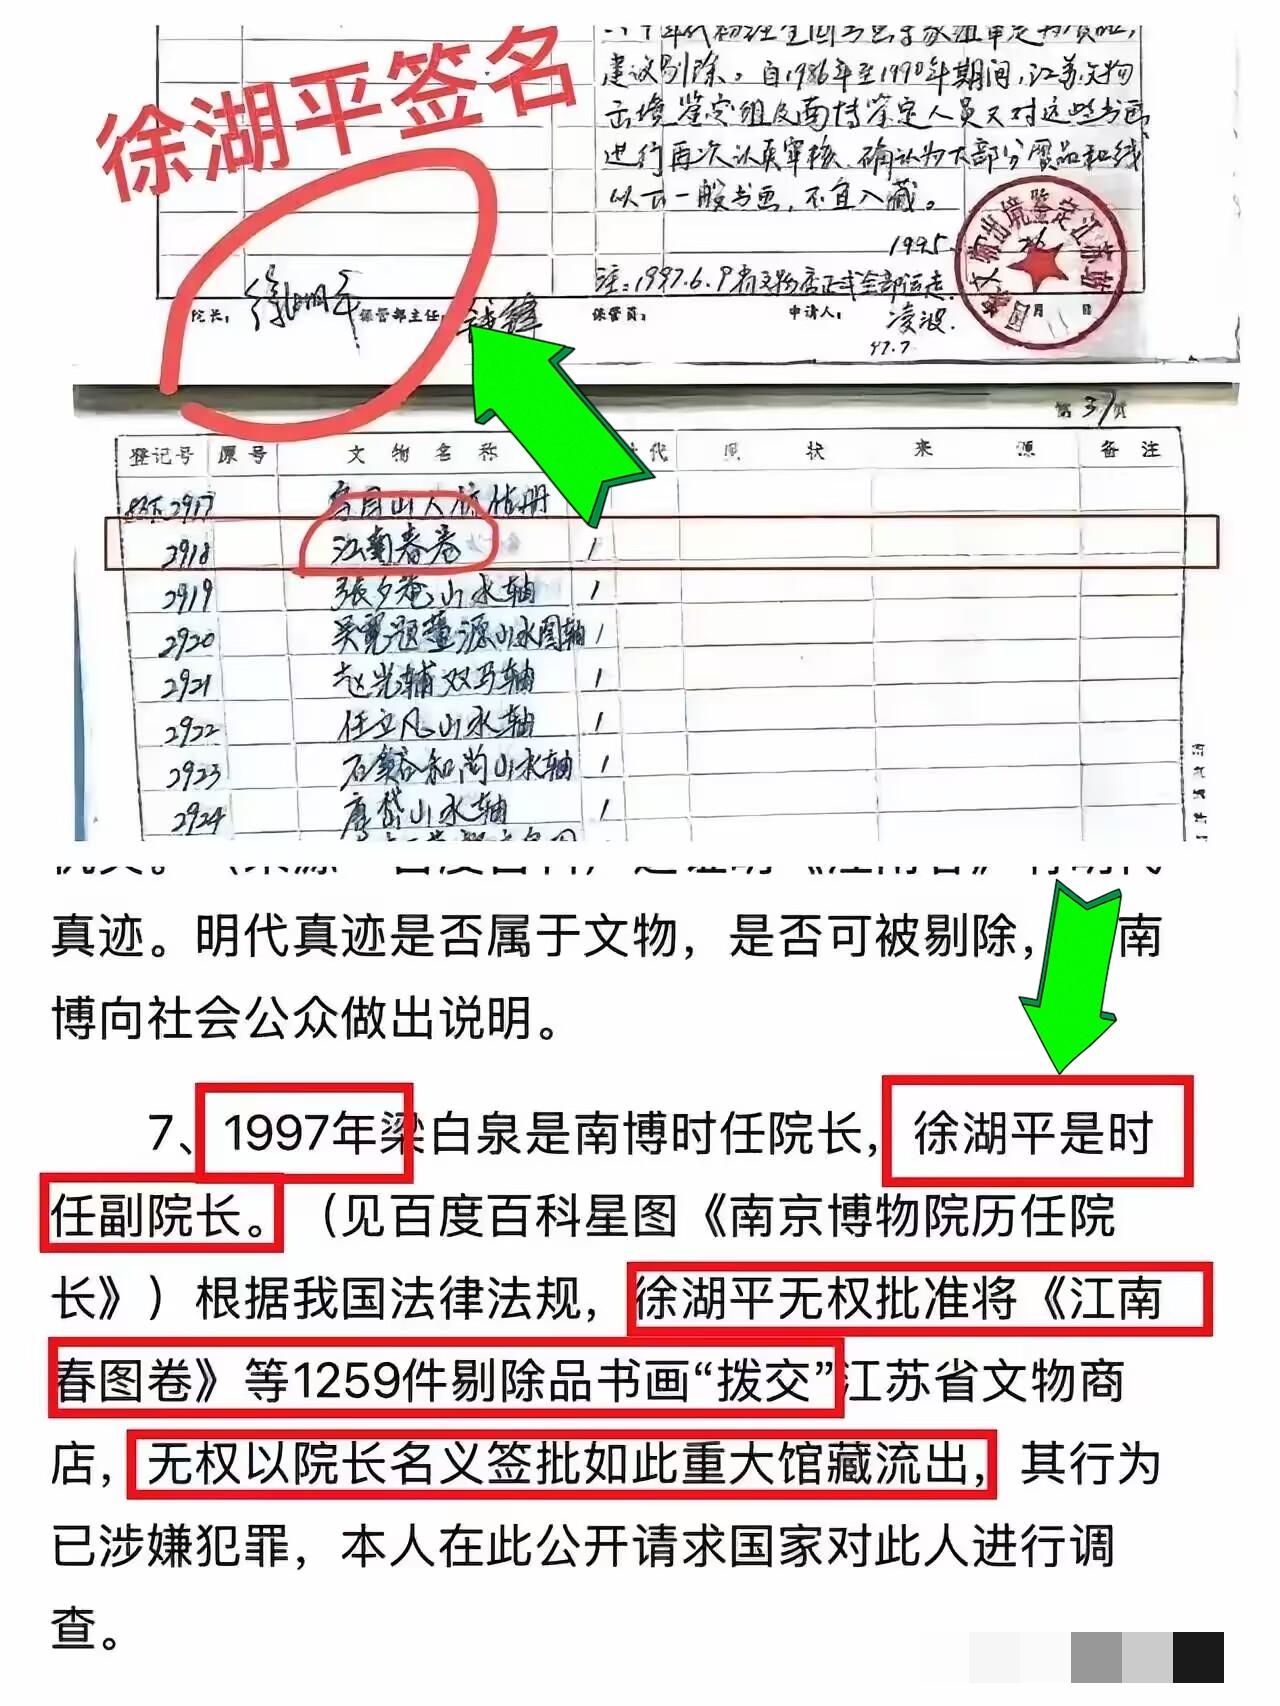 徐湖平签名
建议剔除。自1986年至1990年期间,江苏文物
出境鉴定组及南博鉴定人员又对这些书画
进行再次认真审核,确认为大部分赝品和线
以下一般书画,不宜入藏。
1995.
注:1997.6.9
院长: 徐湖平 保管部主任: 保管员: 申请人: 凌波.
97.7.
月 日
第 31 页
登记号 原号 文物名称 代 现状 来源 备注
2917
2918 江南春卷 1
2919 张夕菴山水轴 1
2920 山水图轴 1
2921 赵光辅双马轴 1
2922 任立凡山水轴 1
2923 石溪和尚山水轴 1
2924 唐岱山水轴 1
真迹。明代真迹是否属于文物,是否可被剔除, 南
博向社会公众做出说明。
7、1997年梁白泉是南博时任院长,徐湖平是时
任副院长。(见百度百科星图《南京博物院历任院
长》)根据我国法律法规,徐湖平无权批准将《江南
春图卷》等1259件剔除品书画“拨交”江苏省文物商
店,无权以院长名义签批如此重大馆藏流出,其行为
已涉嫌犯罪,本人在此公开请求国家对此人进行调
查。